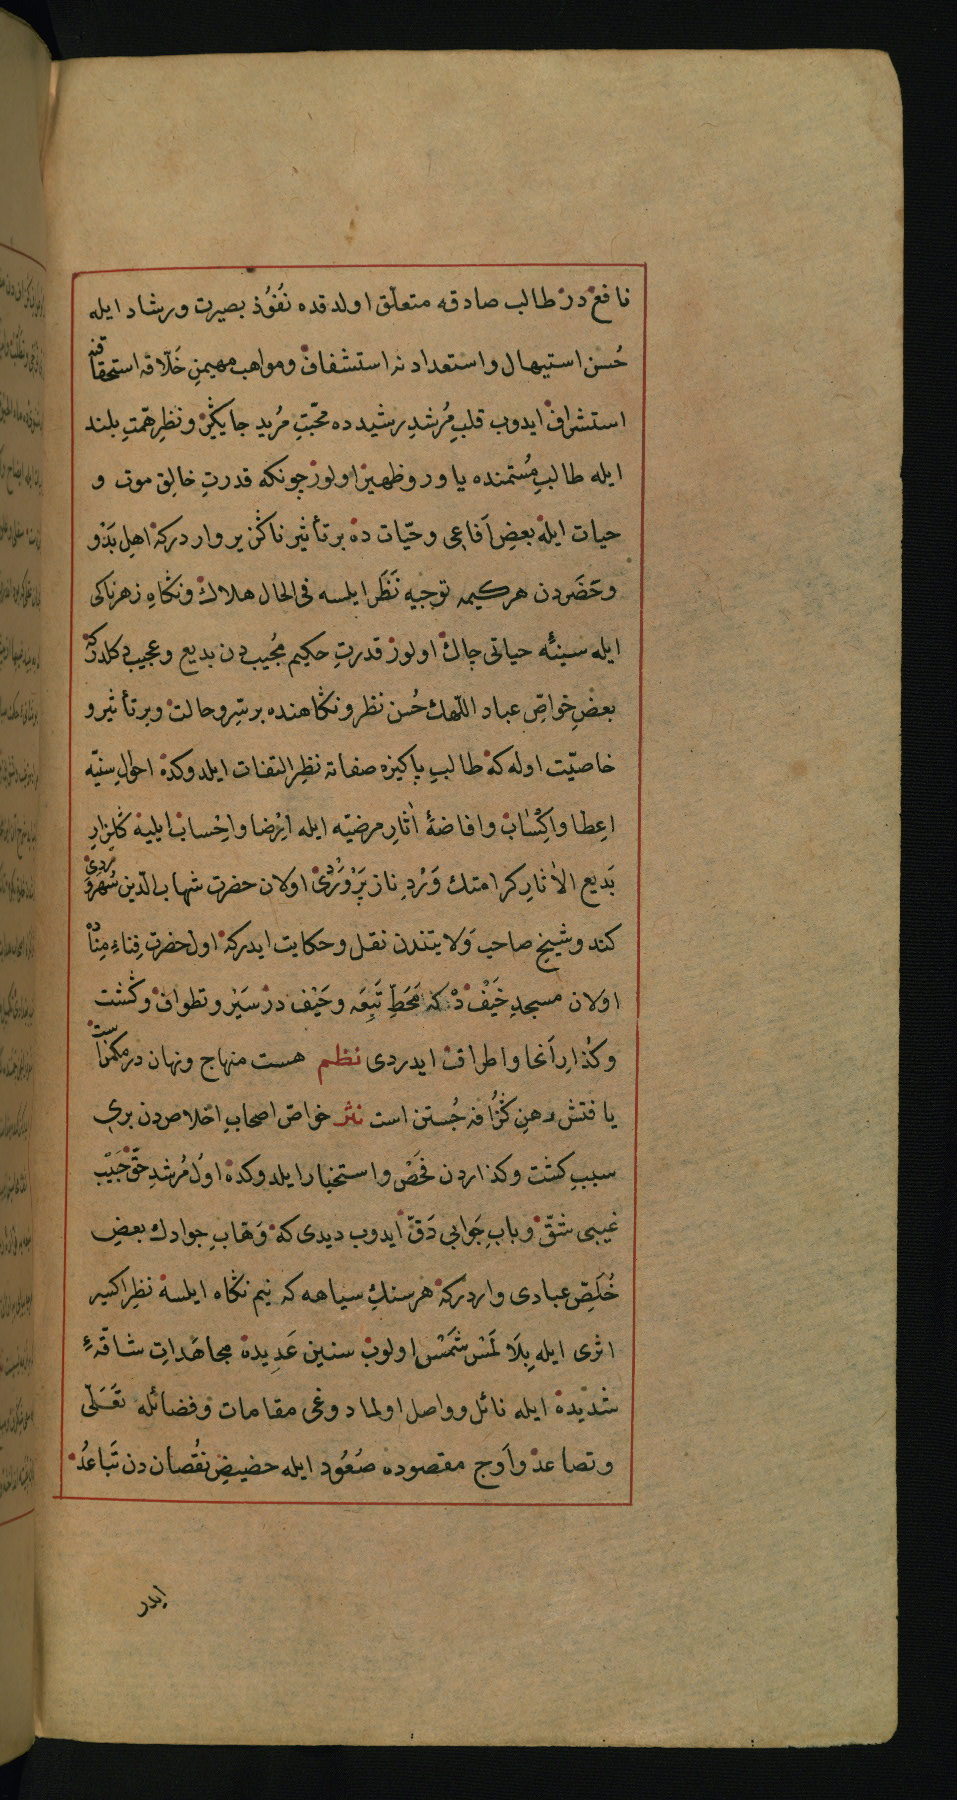 نافع در طالب صادقه متعلّق اولدقده نُفُوذ بصيرت و رشاد ايله
حُسن استيهال و استعدادنه استشفاف و مواهب مهيمنِ خَلّاقه استحقاقنه
استشراف ايدوب قلبِ مُرشدِ رشيدده محبّتِ مُريد جايگير و نظرِ همّتِ بلند
ايله طالبِ مُستمنده ياور و ظهير اولور چونكه قدرتِ خالقِ موت و
حيات ايله بعضِ اَفاعى و حيّات ده بر تأثير ناگزير واردركه اهلِ بَدْو
و حَضَردن هر كيمه توجيه نَظَر ايلسه فى الحال هلاك و نگاهِ زهرناكى
ايله سينهٔ حياتى چاك اولور قدرتِ حكيم مُجيب دن بديع و عجيب دكلدركه
بعضِ خواصِّ عباد اللّهك حُسن نظر و نگاهنده بر سِرّ و حالت و بر تأثير و
خاصيّت اوله كه طالبِ پاكيزه صفاته نظرِ التفات ايلدوكده احوالِ سنيّه
اِعطا و اِكْسَاب و افاضهٔ آثارِ مرضيّه ايله اِرْضا و اِحْساب ايليه گلزارِ
بَديع الآثارِ كرامتك وَرْدِ ناز پَرْوَرْدى اولان حضرت شهاب الدّين سُهْرَوردى
كندو شيخِ صاحب وَلايتندن نقل و حكايت ايدركه اول حضرت فِناءِ مِنًا
اولان مسجدِ خَيْف دْ كه مَحَطِّ تَبِعَه و حَيْف در سَيْر و تطواف و گشت
و گُذارِ اَنحا و اطراف ايدردى نظم هست منهاج و نهان در مكمن است
يافتنش رهنِ گزافه جُستن است نثر خواصّ اصحابِ اخلاصدن برى
سببِ گشت و گذاردن فَحْص و استخبار ايلدوكده اول مُرشدِ حقّ جَيْبِ
غيبى شقّ و بابِ جَوابى دَقّ ايدوب ديدى كه وَهّابِ جوادك بعضِ
خُلَّصِ عبادى واردركه هر سنكِ سياهه كه نيم نگاه ايلسه نظرِ اكسير
اثرى ايله بِلَا لَمْس شَمْس اولوب سنين عَديده مجاهَداتِ شاقّهٔ
شديده ايله نائل و واصل اولمادوغى مقامات و فضائله تَعَلّى
و تصاعد و اَوجِ مقصوده صُعُود ايله حضيضِ نُقصان دن تَباعُد
ايدر